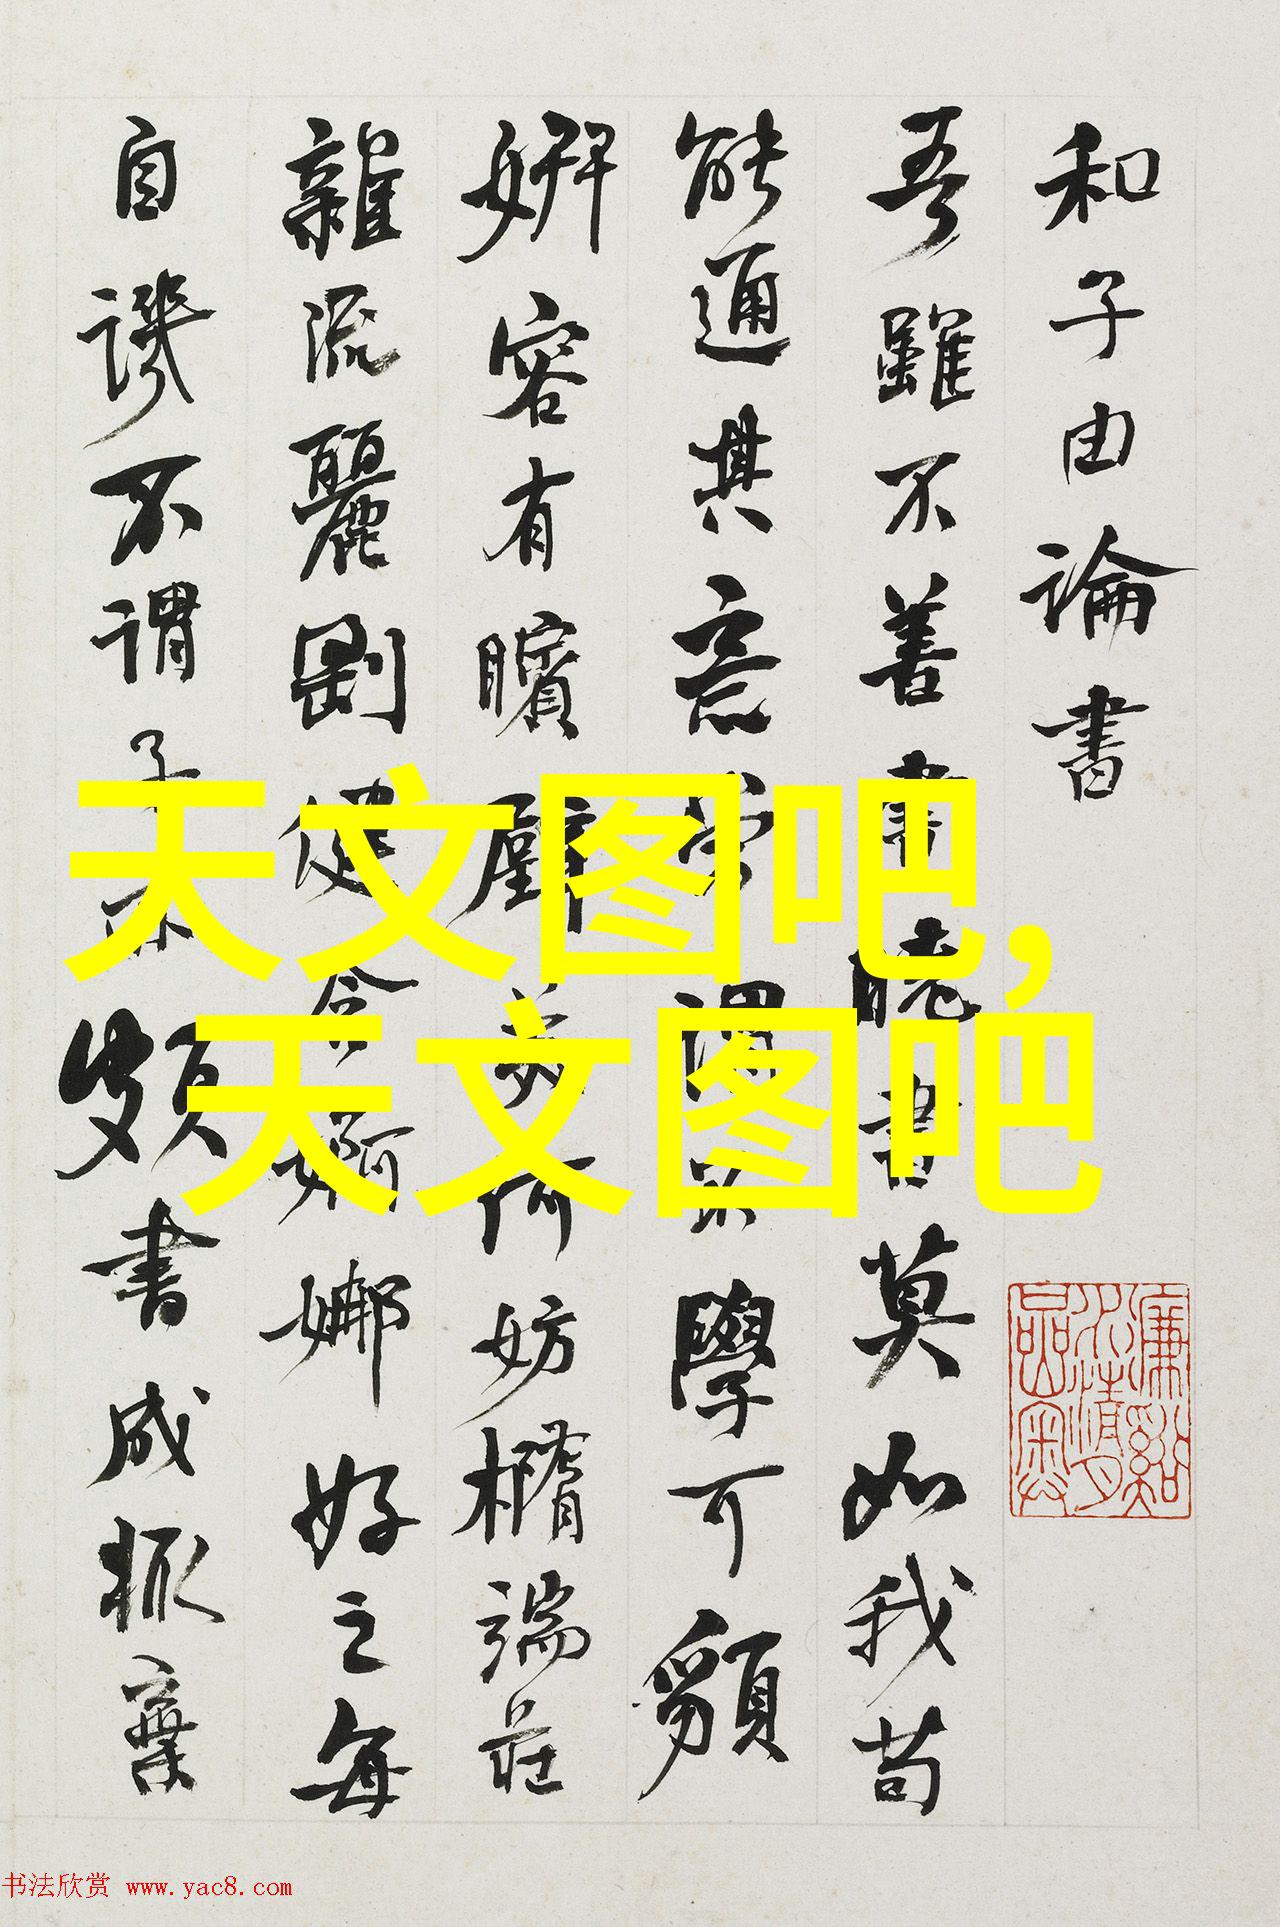 和子由論書
吾雖不善書曉書莫如我苟
能通其意常謂不學可貌
妍容有矉璧美何妨橢端莊
雜流麗剛健含婀娜好之每
自譏不謂子亦頗書成輒棄
天文图吧,
天文图吧
书法欣赏 www.yac8.com